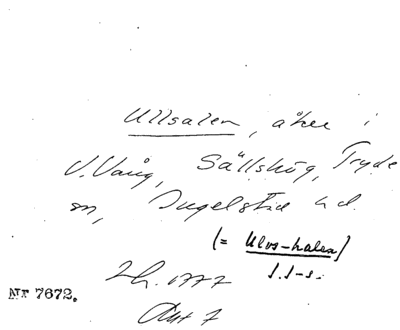 Ullsalen, åker i
V. Vång, Sällshög, Tryde
sn, Ingelstad hd.
(= Ulos-halen)
Nr 7672.
Akt 7